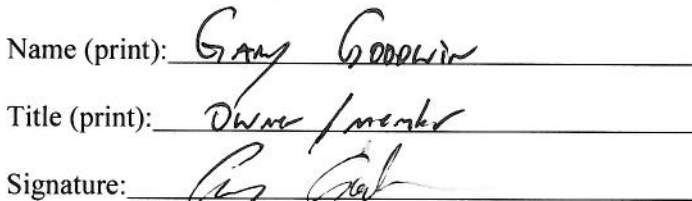 Name (print): Gary Goodwin
Title (print): Owner / member
Signature: